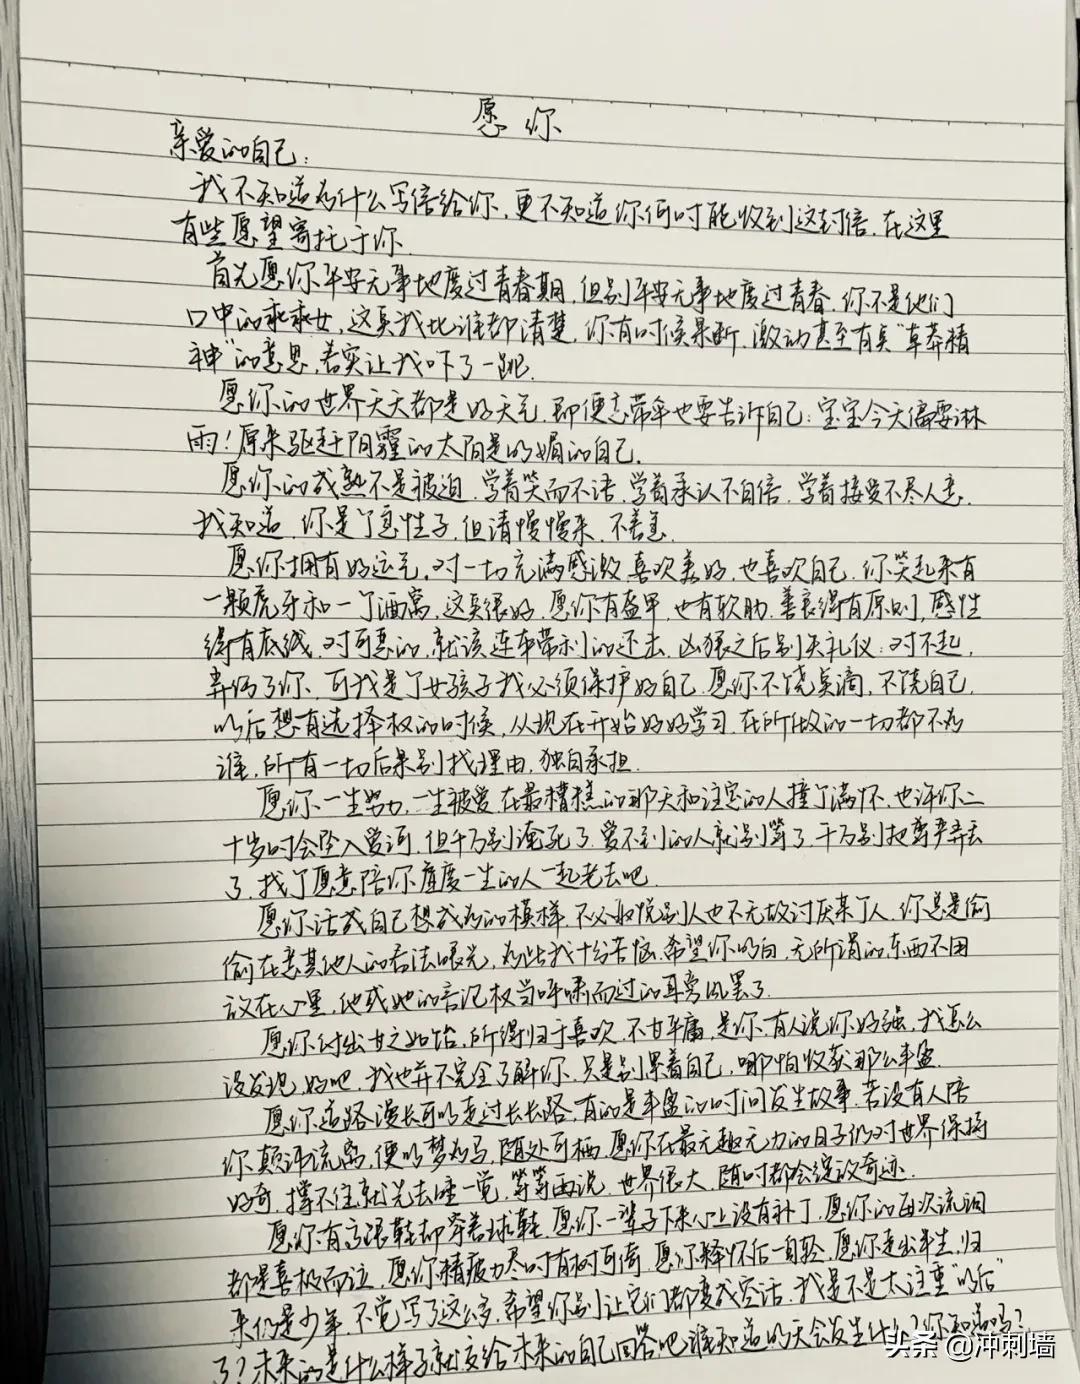 愿你
亲爱的自己：
我不知道为什么写信给你，更不知道你何时能收到这封信，在这里
有些愿望寄托于你
首先愿你平安无事地度过青春期，但别平安无事地度过青春，你不是他们
口中的乖乖女，这点我比谁都清楚，你有时候果断、激动甚至有点"草莽精
神"的意思，着实让我吓了一跳.
愿你的世界天天都是好天气，即便忘带伞也要告诉自己：宝宝今天偏要淋
雨！原来驱赶阴霾的太阳是明媚的自己.
愿你的成熟不是被迫，学着笑而不语，学着承认不自信，学着接受不尽人意.
我知道，你是个急性子，但请慢慢来，不着急.
愿你拥有好运气，对一切充满感激，喜欢美好，也喜欢自己，你笑起来有
一颗虎牙和一个酒窝，这点很好，愿你有盔甲，也有软肋，善良得有原则，感性
得有底线，对可恶的，就该连本带利的还击，凶狠之后别失礼仪：对不起，
弄伤了你、可我是个女孩子我必须保护好自己，愿你不饶点滴，不饶自己，
以后想有选择权的时候，从现在开始好好学习，在所做的一切都不为
谁，所有一切后果别找理由，独自承担.
愿你一生努力，一生被爱，在最糟糕的那天和注定的人撞个满怀，也许你二
十岁时会坠入爱河，但千万别淹死了，爱不到的人就别等了，千万别把尊严弄丢
了，找个愿意陪你虚度一生的人一起老去吧.
愿你活成自己想成为的模样，不必取悦别人也不无故讨厌某个人，你总是偷
偷在意其他人的看法眼光，为此我十分苦恼，希望你明白，无所谓的东西不用
放在心里，他或她的言记权当呼啸而过的耳旁风罢了.
愿你付出甘之如饴，所得归于喜欢，不甘平庸，是你，有人说你好强，我怎么
没发现，好吧，我也并不完全了解你，只是别累着自己，哪怕收获那么丰盈.
愿你道路漫长可以走过长长路，有的是丰盈的时间发生故事，若没有人陪
你颠沛流离，便以梦为马，随处可栖，愿你在最无趣无力的日子仍对世界保持
好奇，撑不住就先去睡一觉，等等再说，世界很大，随时都会绽放奇迹.
愿你有高跟鞋却穿着球鞋，愿你一辈子下来心上没有补丁，愿你的每次流泪
都是喜极而泣，愿你精疲力尽时有树可倚，愿你释怀后一身轻，愿你走出半生，归
来仍是少年，不觉写了这么多，希望你别让它们都变成空话，我是不是太注重"以后"
了？未来的是什么样子就交给未来的自己回答吧，谁知道明天会发生什么？你知道吗？
头条 @冲刺墙